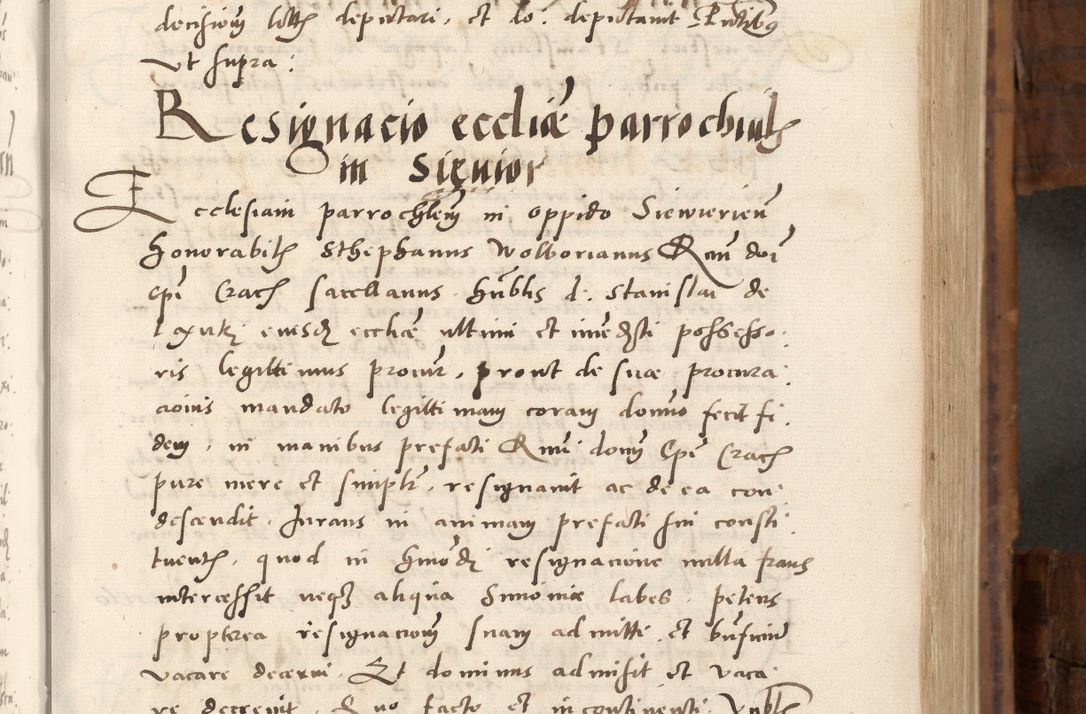 decisiom littm deputari, et do: deputavit Pntibus
Vt supra:
Resignacio eccliæ parrochialis
in Sieuior
Ecclesiam parrochlem in oppido Siewierien
honorabilis Sthephanus Wolborianus Rmi doi
Epi Crac sacellanus. hnblis d. Stanislai de
eiusdem eccliæ ultimi et immediati possesso.
ris legittimus procur, prout de suæ procura.
cionis mandato legittimam coram domino fecit fi.
dem, in manibus prefati Rmi domi Epi Crac
pure mere et simplr, resignavit ac de ea con.
descendit. Jurans in animam prefati sui consti.
tuentis, quod in hmodi resignacione nulla fraus
intercessit neque aliqua Simoniæ labes. petens
propterea resignaciom suam admitti et bnficium
vacare decerni. Et dominus admisit et vaca
re decrevit. Quo facto et in continenti. Vnblis